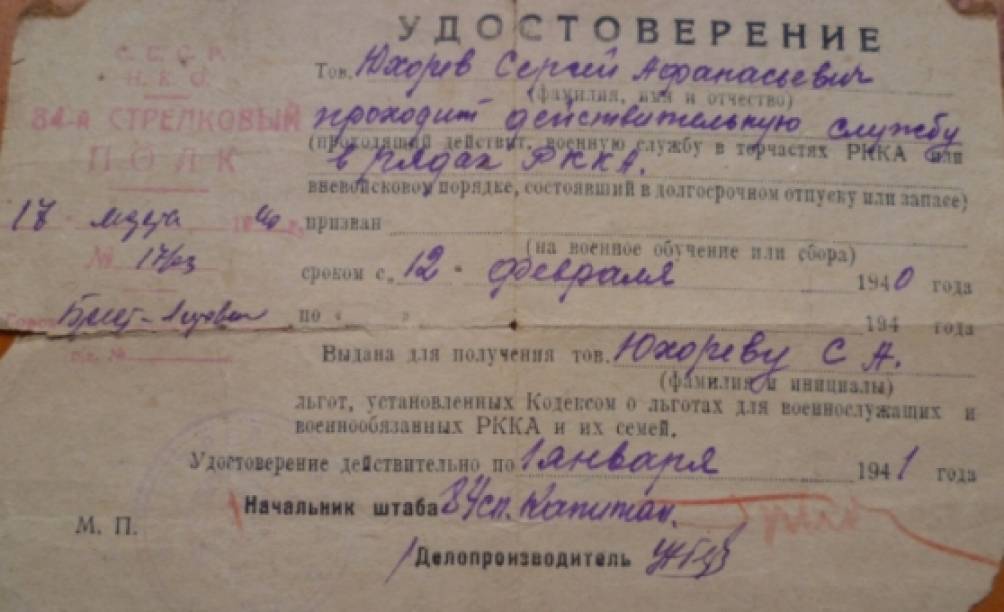 УДОСТОВЕРЕНИЕ
С. С. С. Р.
Н. К. О.
84-й СТРЕЛКОВЫЙ
ПОЛК
17 марта 1940 г.
№
Брест-Литовск
Тов. Юхорев Сергей Афанасьевич
(фамилия, имя и отчество)
проходит действительную службу
(проходящий действит. военную службу в терчастях РККА или
в рядах РККА.
вневойсковом порядке, состоявший в долгосрочном отпуску или запасе)
призван
(на военное обучение или сбора)
сроком с „12" февраля 1940 года
по „ " 194 года
Выдана для получения тов. Юхореву С. А.
(фамилия и инициалы)
льгот, установленных Кодексом о льготах для военнослужащих и
военнообязанных РККА и их семей.
Удостоверение действительно по 1 января 1941 года
Начальник штаба 84 сп. Капитан.
М. П.
Делопроизводитель